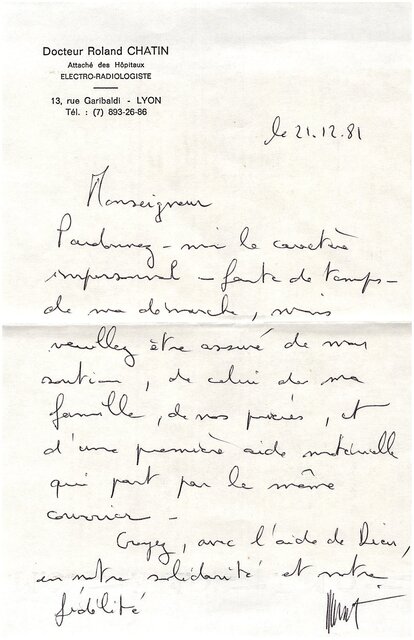 Docteur Roland CHATIN
Attaché des Hôpitaux
ELECTRO-RADIOLOGISTE
13, rue Garibaldi - LYON
Tél. : (7) 893-26-86
le 21.12.81
Monseigneur
Pardonnez-moi le caractère
impersonnel - faute de temps -
de ma démarche, mais
veuillez être assuré de mon
soutien, de celui de ma
famille, de nos prières, et
d'une première aide matérielle
qui part par le même
courrier -
Croyez, avec l'aide de Dieu,
en notre solidarité et notre
fidélité